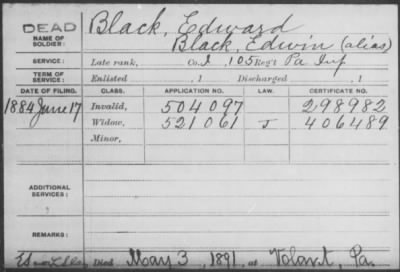 DEAD Black, Edward
NAME OF SOLDIER: Black, Edwin (alias)
SERVICE: Late rank, Co. I, 105 Reg't Pa Inf
TERM OF SERVICE: Enlisted , 1 Discharged , 1
DATE OF FILING. CLASS. APPLICATION NO. LAW. CERTIFICATE NO.
1884 June 17 Invalid, 504097 298982
Widow, 521061 J 406489
Minor,
ADDITIONAL SERVICES:
REMARKS:
Died May 3, 1891, at Volant, Pa.